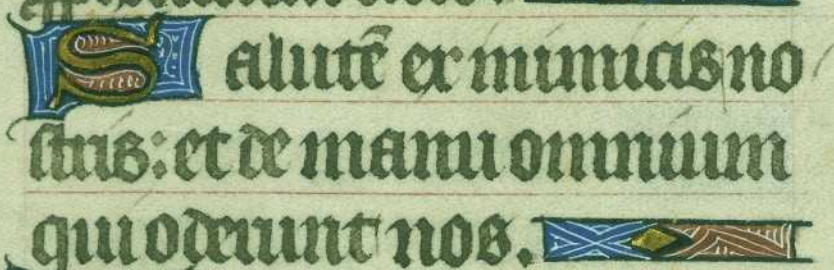 Salutē ex inimicis no
stris: et de manu omnium
qui oderunt nos.